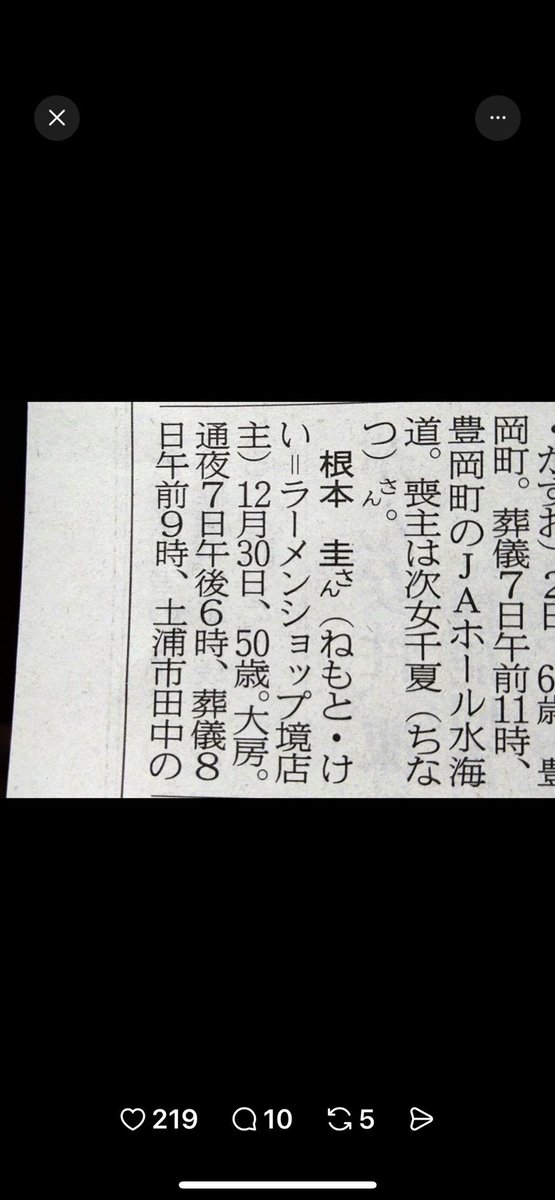 岡町。葬儀７日午前11時、
豊岡町のＪＡホール水海
道。喪主は次女千夏（ちな
つ）さん。
根本　圭さん（ねもと・け
い＝ラーメンショップ境店
主）12月30日、50歳。大房。
通夜７日午後６時、葬儀８
日午前９時、土浦市田中の
219
10
5